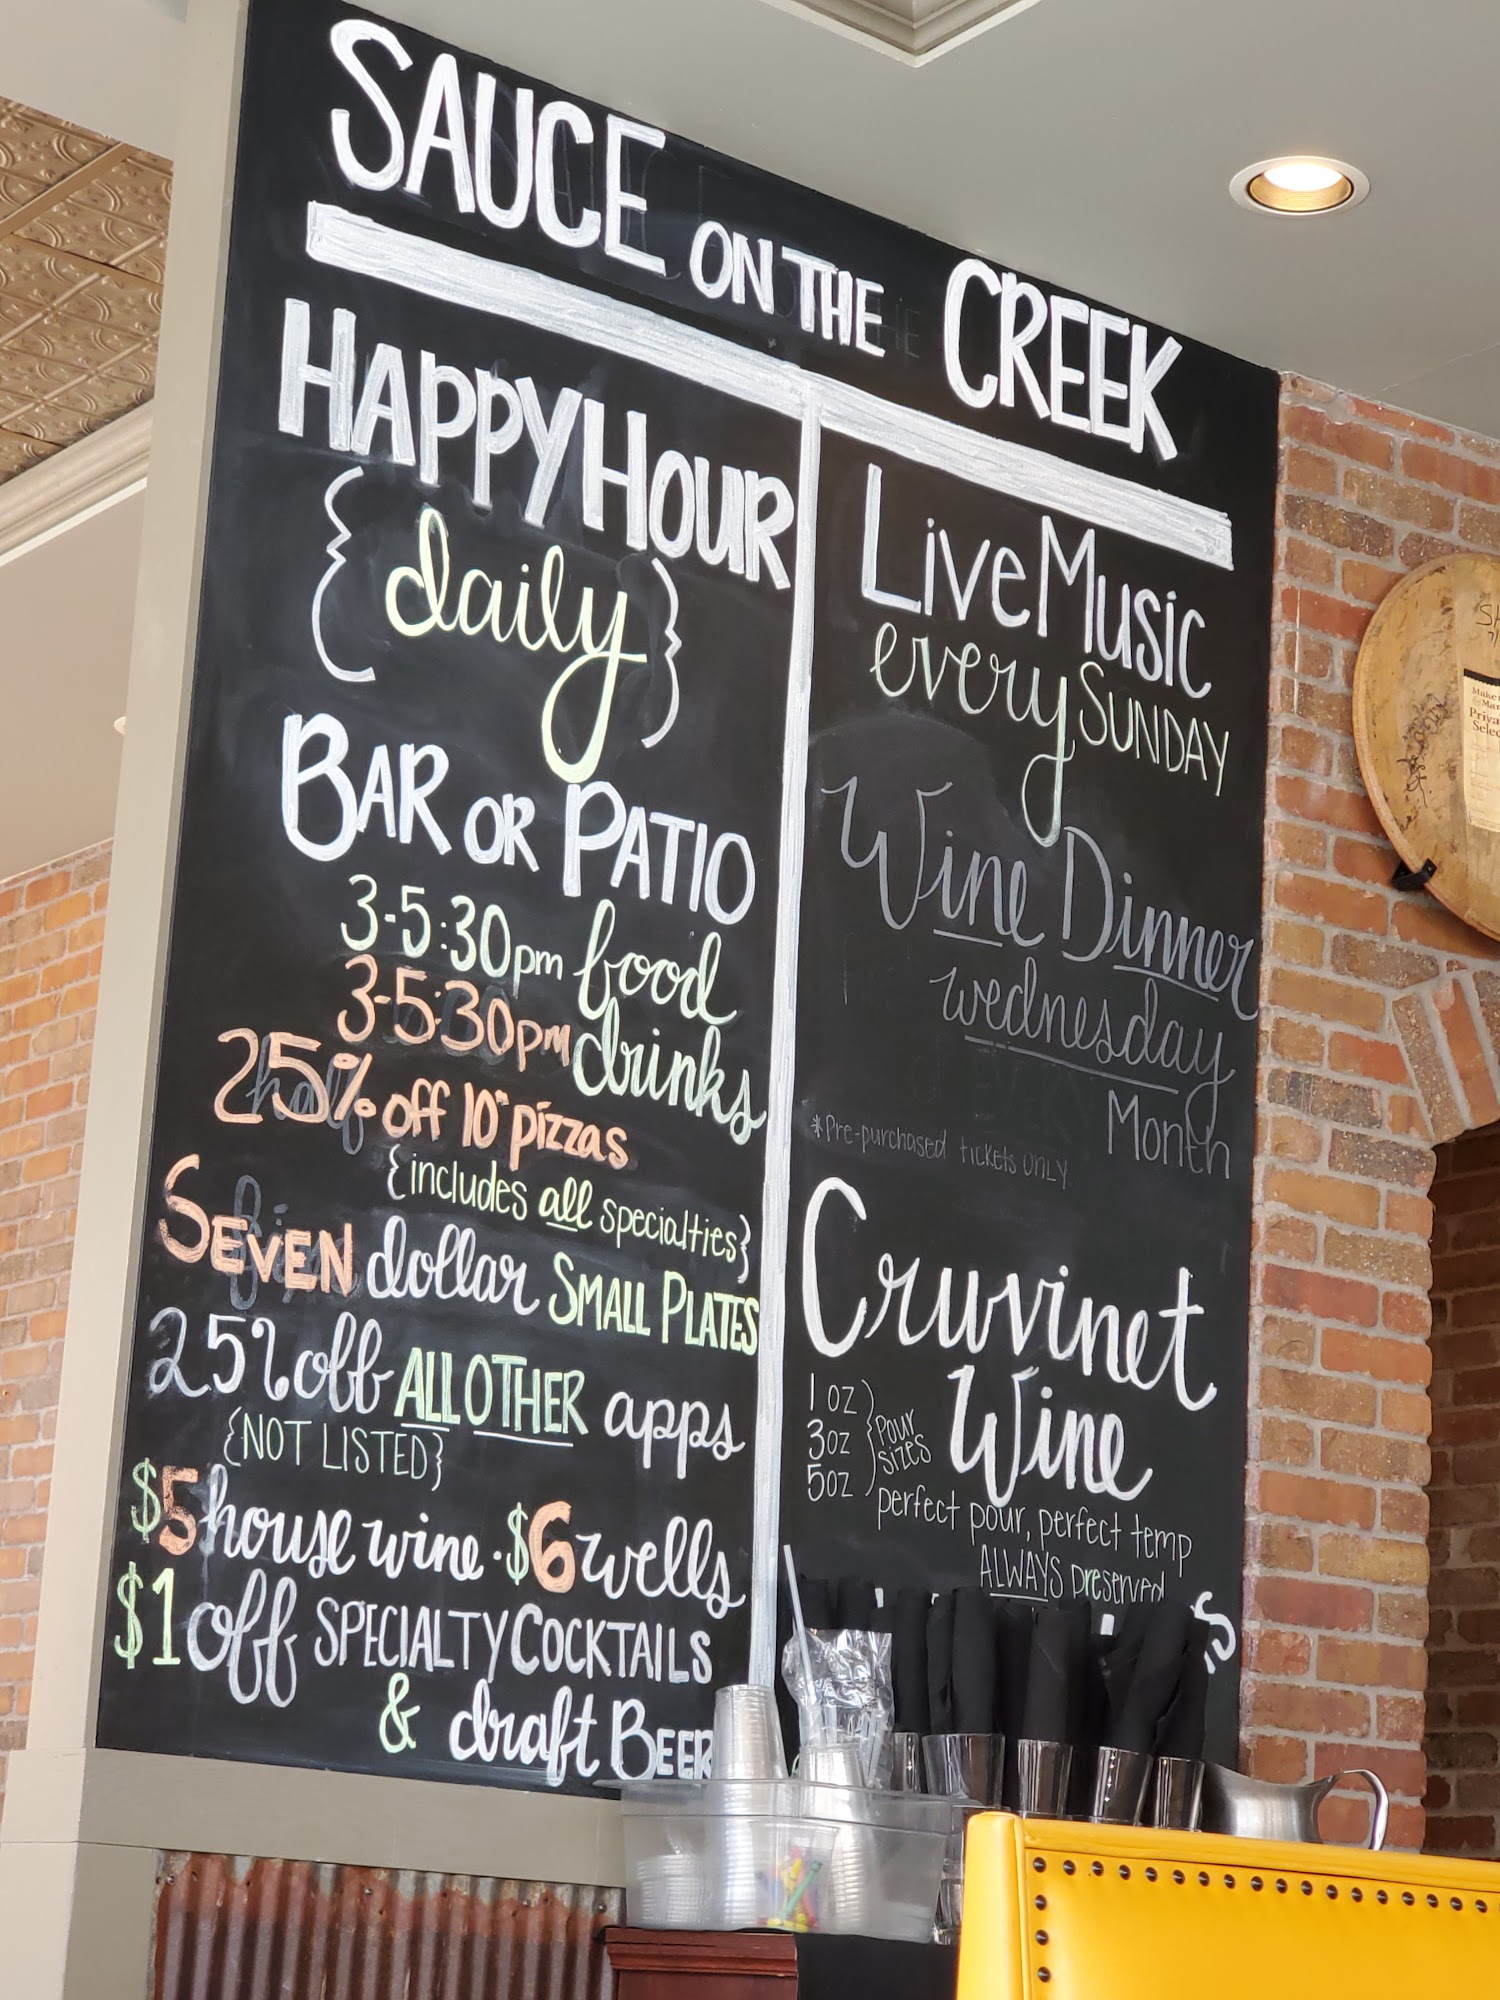 SAUCE ON THE CREEK
HAPPY HOUR
{daily}
BAR OR PATIO
3-5:30pm food
3-5:30pm drinks
25% off 10" pizzas
{includes all specialties}
SEVEN dollar SMALL PLATES
25% off ALL OTHER apps
{NOT LISTED}
$5 house wine · $6 wells
$1 off SPECIALTY COCKTAILS
& draft BEER
Live Music
every SUNDAY
Wine Dinner
wednesday
Month
*Pre-purchased tickets ONLY
Cruvinet
Wine
1 OZ
3 OZ
5 OZ
POUR
SIZES
perfect pour, perfect temp
ALWAYS preserved
Make
Mar
Priva
Selec